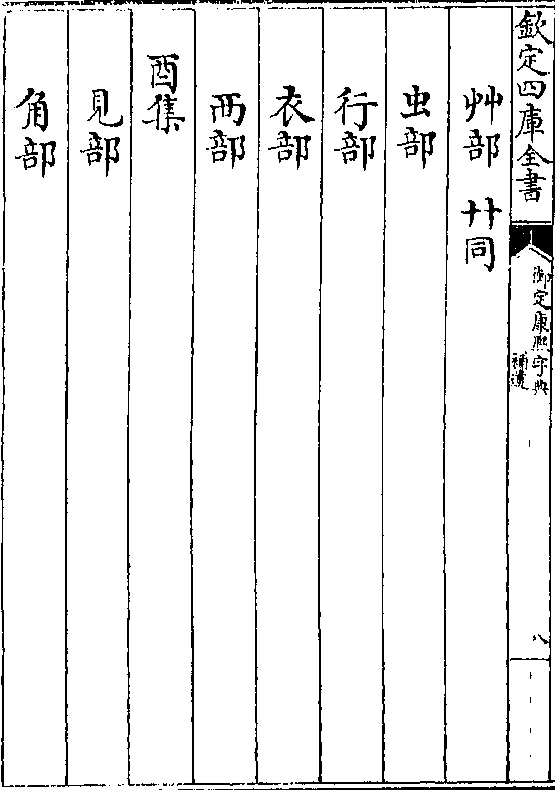 欽定四庫全書
御定康熙字典
補遺
八
艸部 艹同
虫部
行部
衣部
襾部
酉集
見部
角部